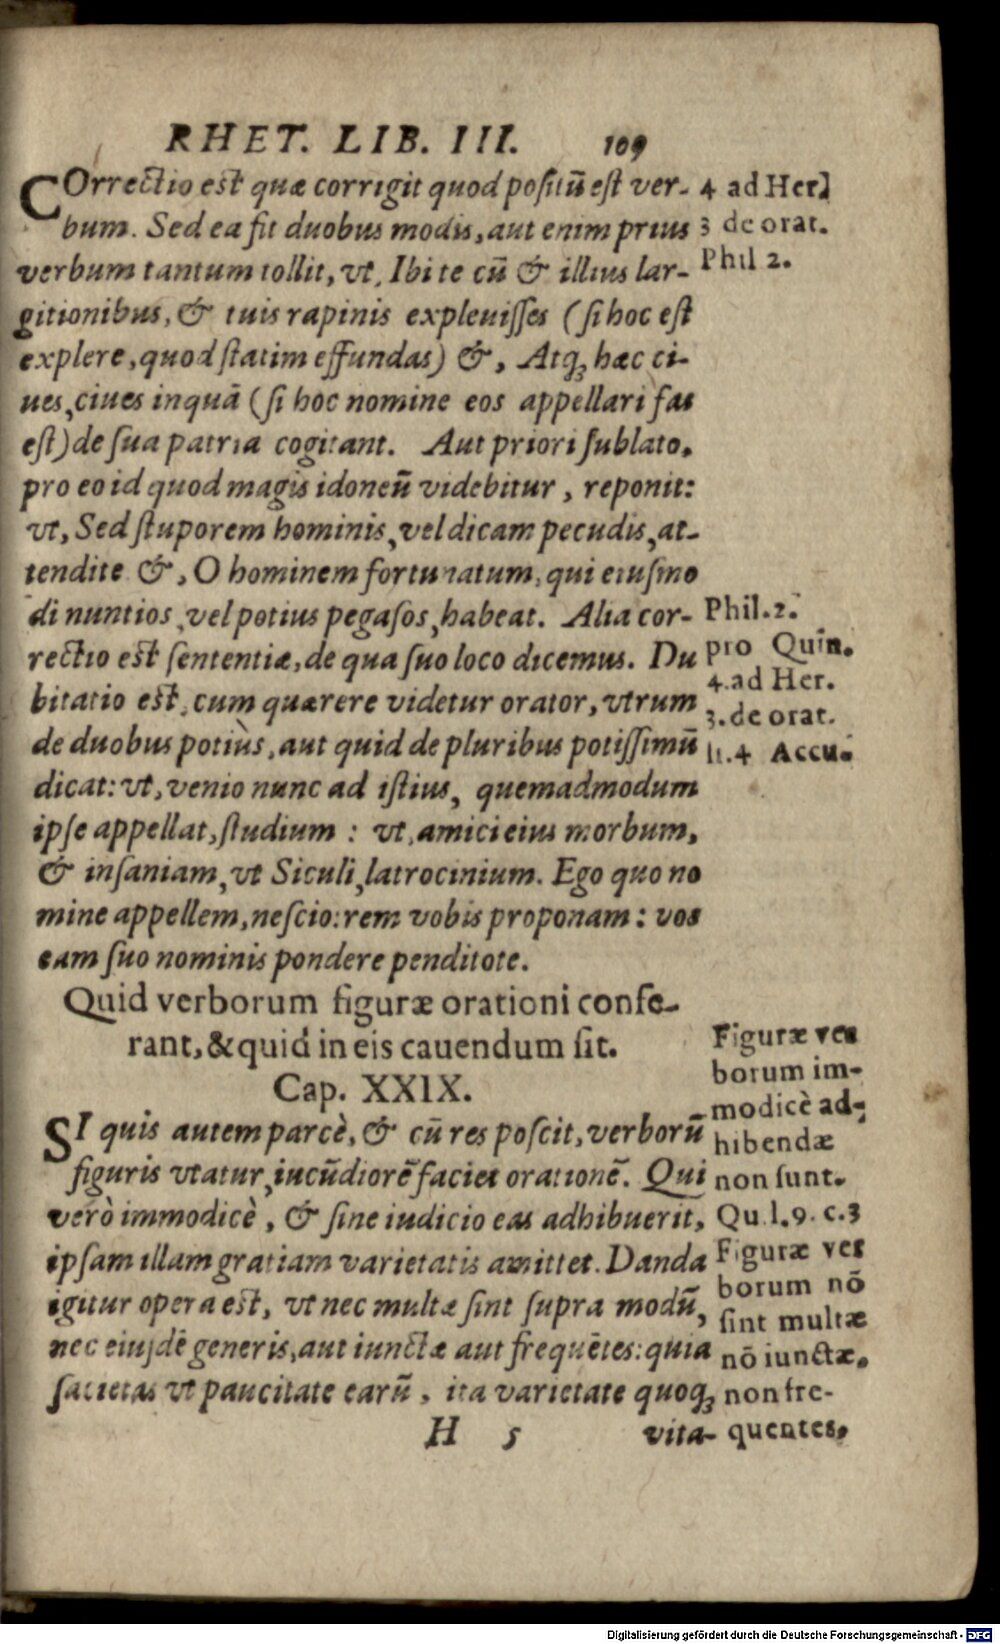 RHET. LIB. III. 109
COrrectio est quæ corrigit quod positũ est ver-
bum. Sed ea fit duobus modis, aut enim prius
verbum tantum tollit, vt, Ibi te cũ & illius lar-
gitionibus, & tuis rapinis expleuisses (si hoc est
explere, quod statim effundas) &, Atq; hæc ci-
ues, ciues inquā (si hoc nomine eos appellari fas
est) de sua patria cogitant. Aut priori sublato,
pro eo id quod magis idoneũ videbitur, reponit:
vt, Sed stuporem hominis, vel dicam pecudis, at-
tendite &, O hominem fortunatum, qui eiusmo
di nuntios, vel potius pegasos, habeat. Alia cor-
rectio est sententiæ, de qua suo loco dicemus. Du
bitatio est, cum quærere videtur orator, vtrum
de duobus potiùs, aut quid de pluribus potissimũ
dicat: vt, venio nunc ad istius, quemadmodum
ipse appellat, studium : vt, amici eius morbum,
& insaniam, vt Siculi, latrocinium. Ego quo no
mine appellem, nescio: rem vobis proponam: vos
eam suo nominis pondere penditote.
4 ad Her.
3 de orat.
Phil 2.
Phil. 2.
pro Quin.
4. ad Her.
3. de orat.
li. 4 Accu.
Quid verborum figuræ orationi confe-
rant, & quid in eis cauendum sit.
Cap. XXIX.
SI quis autem parcè, & cũ res poscit, verborũ
figuris vtatur, iucũdiorē faciet orationē. Qui
verò immodicè, & sine iudicio eas adhibuerit,
ipsam illam gratiam varietatis amittet. Danda
igitur opera est, vt nec multæ sint supra modũ,
nec eiusdē generis, aut iunctæ aut frequētes: quia
satietas vt paucitate earũ, ita varietate quoq;
H 5 vita-
Figuræ ver
borum im-
modicè ad-
hibendæ
non sunt.
Qu. l. 9. c. 3
Figuræ ver
borum nō
sint multæ
nō iunctæ,
non fre-
quentes,
Digitalisierung gefördert durch die Deutsche Forschungsgemeinschaft - DFG